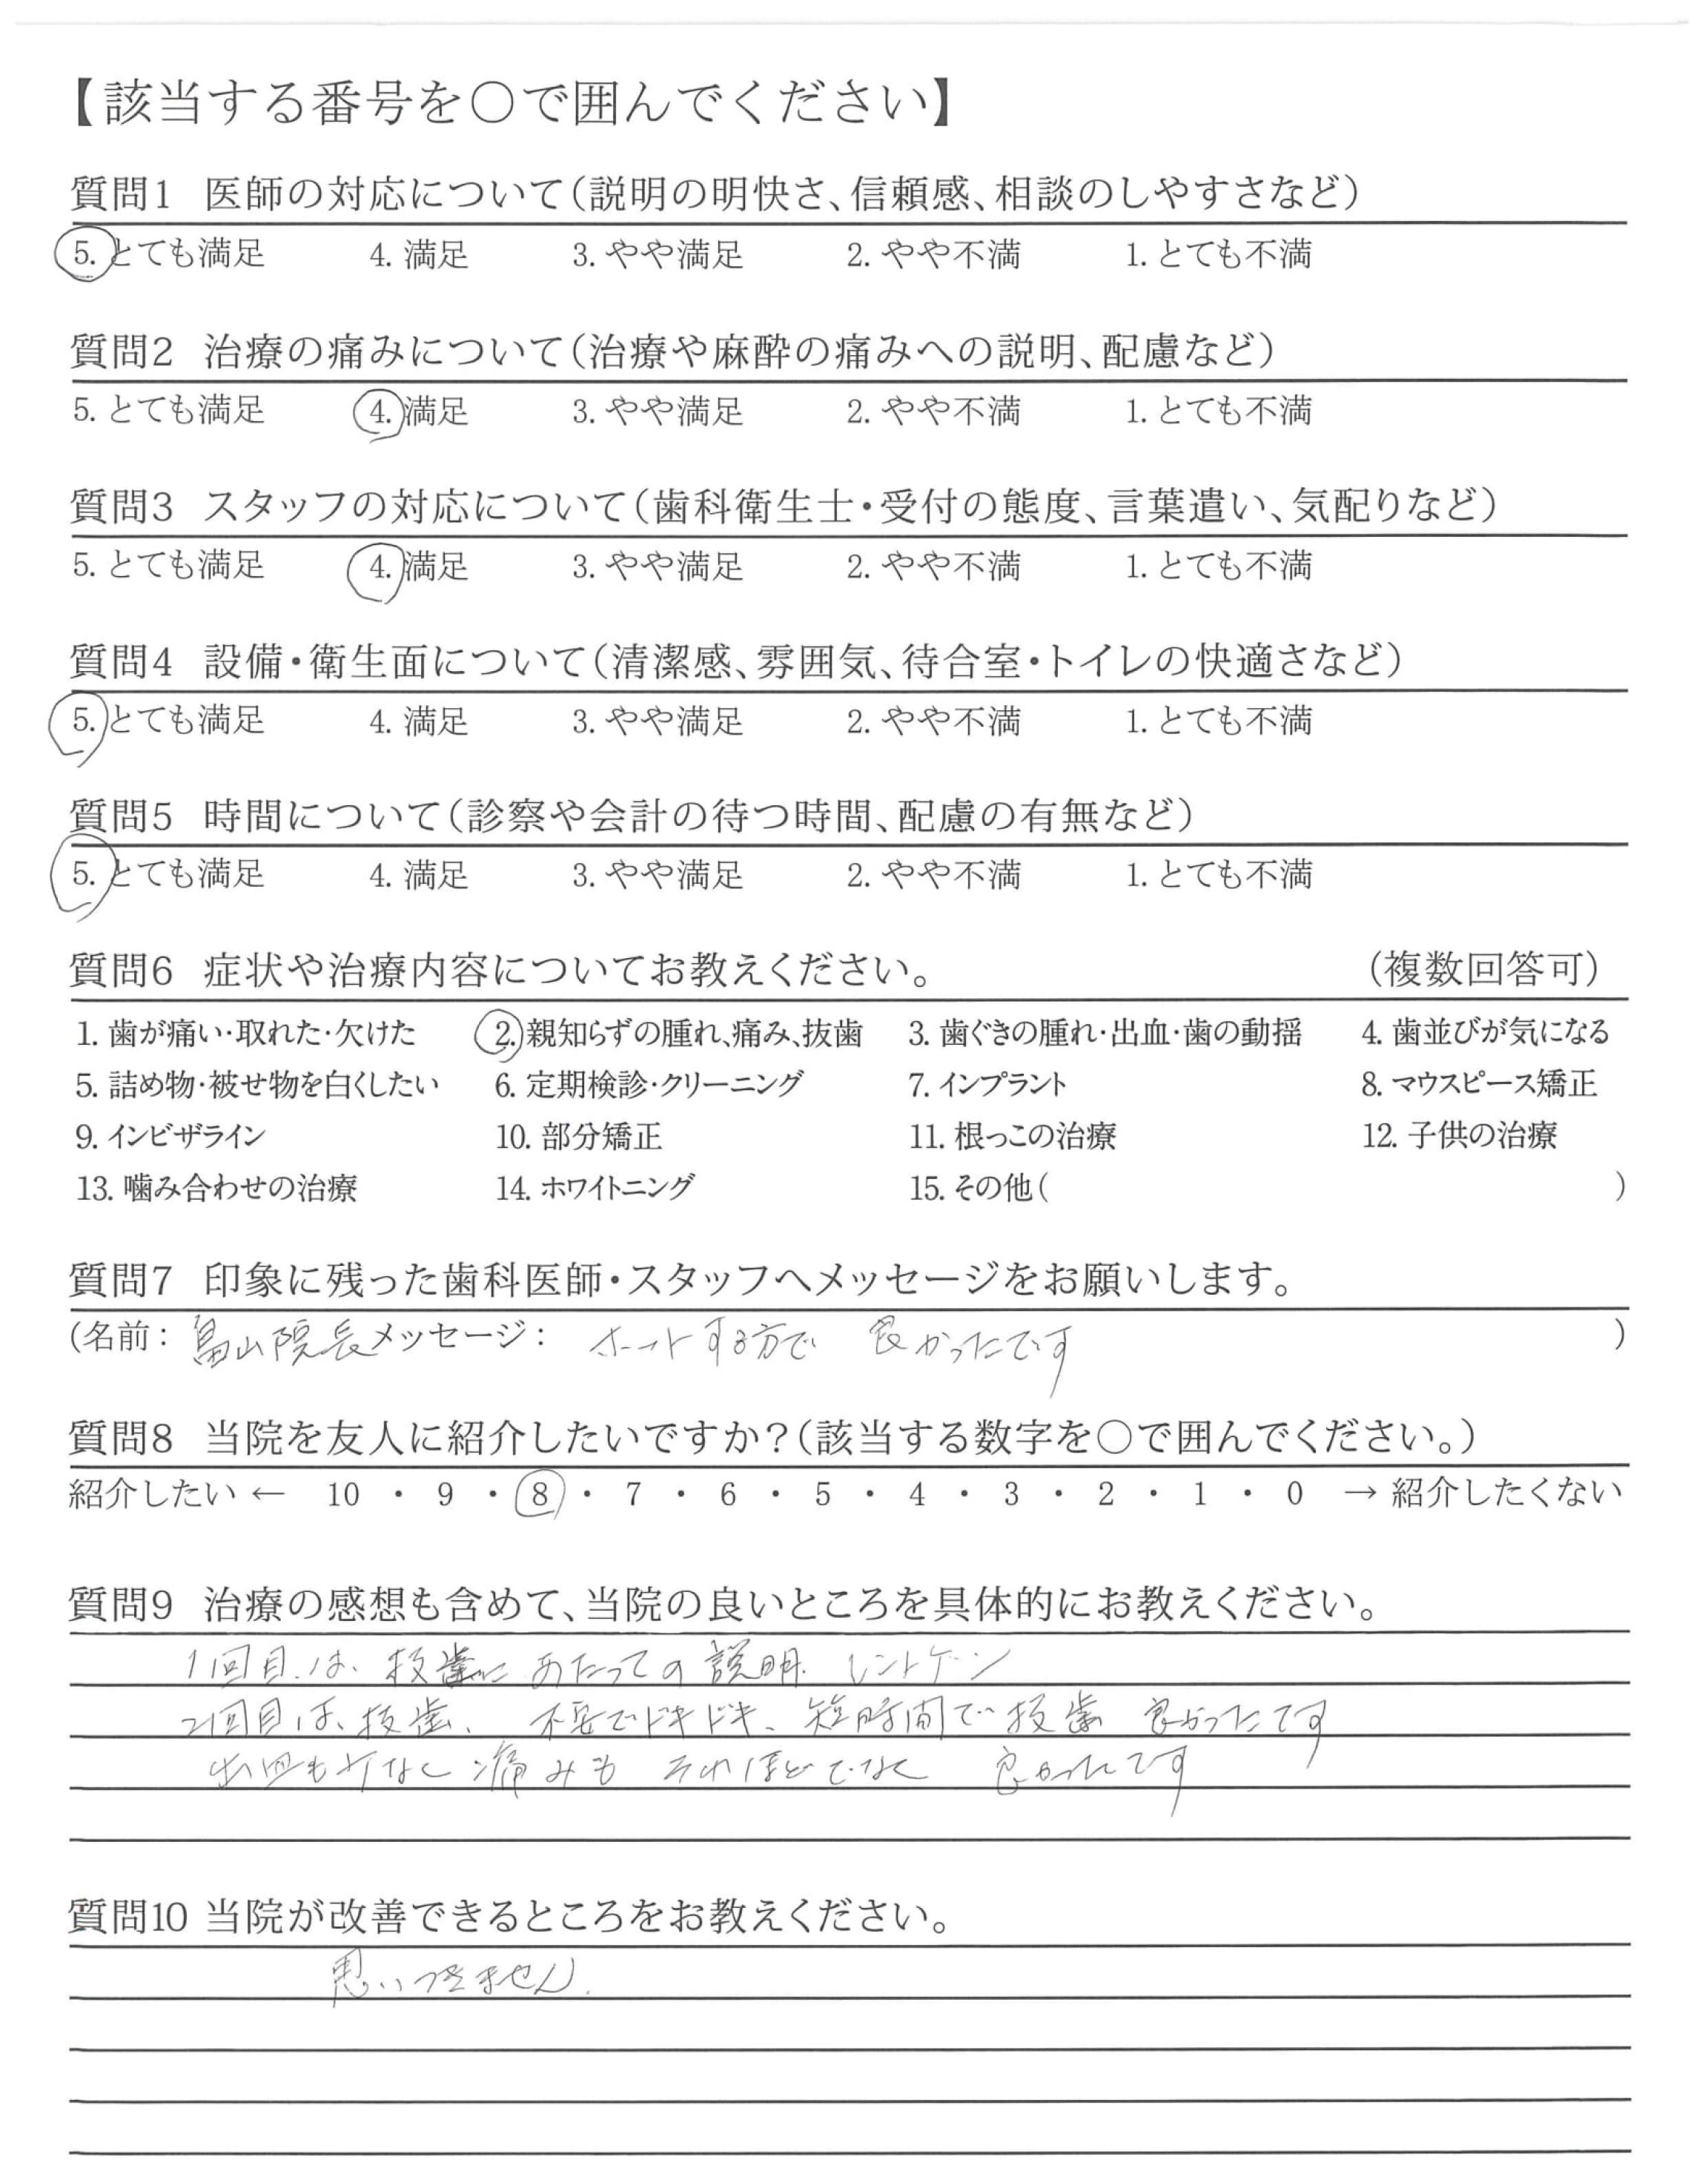 【該当する番号を○で囲んでください】
質問1 医師の対応について(説明の明快さ、信頼感、相談のしやすさなど)
5. とても満足 4. 満足 3. やや満足 2. やや不満 1. とても不満
質問2 治療の痛みについて(治療や麻酔の痛みへの説明、配慮など)
5. とても満足 4. 満足 3. やや満足 2. やや不満 1. とても不満
質問3 スタッフの対応について(歯科衛生士・受付の態度、言葉遣い、気配りなど)
5. とても満足 4. 満足 3. やや満足 2. やや不満 1. とても不満
質問4 設備・衛生面について(清潔感、雰囲気、待合室・トイレの快適さなど)
5. とても満足 4. 満足 3. やや満足 2. やや不満 1. とても不満
質問5 時間について(診察や会計の待つ時間、配慮の有無など)
5. とても満足 4. 満足 3. やや満足 2. やや不満 1. とても不満
質問6 症状や治療内容についてお教えください。 (複数回答可)
1. 歯が痛い・取れた・欠けた 2. 親知らずの腫れ、痛み、抜歯 3. 歯ぐきの腫れ・出血・歯の動揺 4. 歯並びが気になる
5. 詰め物・被せ物を白くしたい 6. 定期検診・クリーニング 7. インプラント 8. マウスピース矯正
9. インビザライン 10. 部分矯正 11. 根っこの治療 12. 子供の治療
13. 噛み合わせの治療 14. ホワイトニング 15. その他( )
質問7 印象に残った歯科医師・スタッフへメッセージをお願いします。
(名前: 畠山院長 メッセージ: ホットする方で 良かったです )
質問8 当院を友人に紹介したいですか?(該当する数字を○で囲んでください。)
紹介したい ← 10 ・ 9 ・ 8 ・ 7 ・ 6 ・ 5 ・ 4 ・ 3 ・ 2 ・ 1 ・ 0 → 紹介したくない
質問9 治療の感想も含めて、当院の良いところを具体的にお教えください。
1回目は、抜歯にあたっての説明、レントゲン
2回目は、抜歯、不安でドキドキ、短時間で抜歯 良かったです
出血も少なく痛みも それほどでなく 良かったです
質問10 当院が改善できるところをお教えください。
思いつきません.